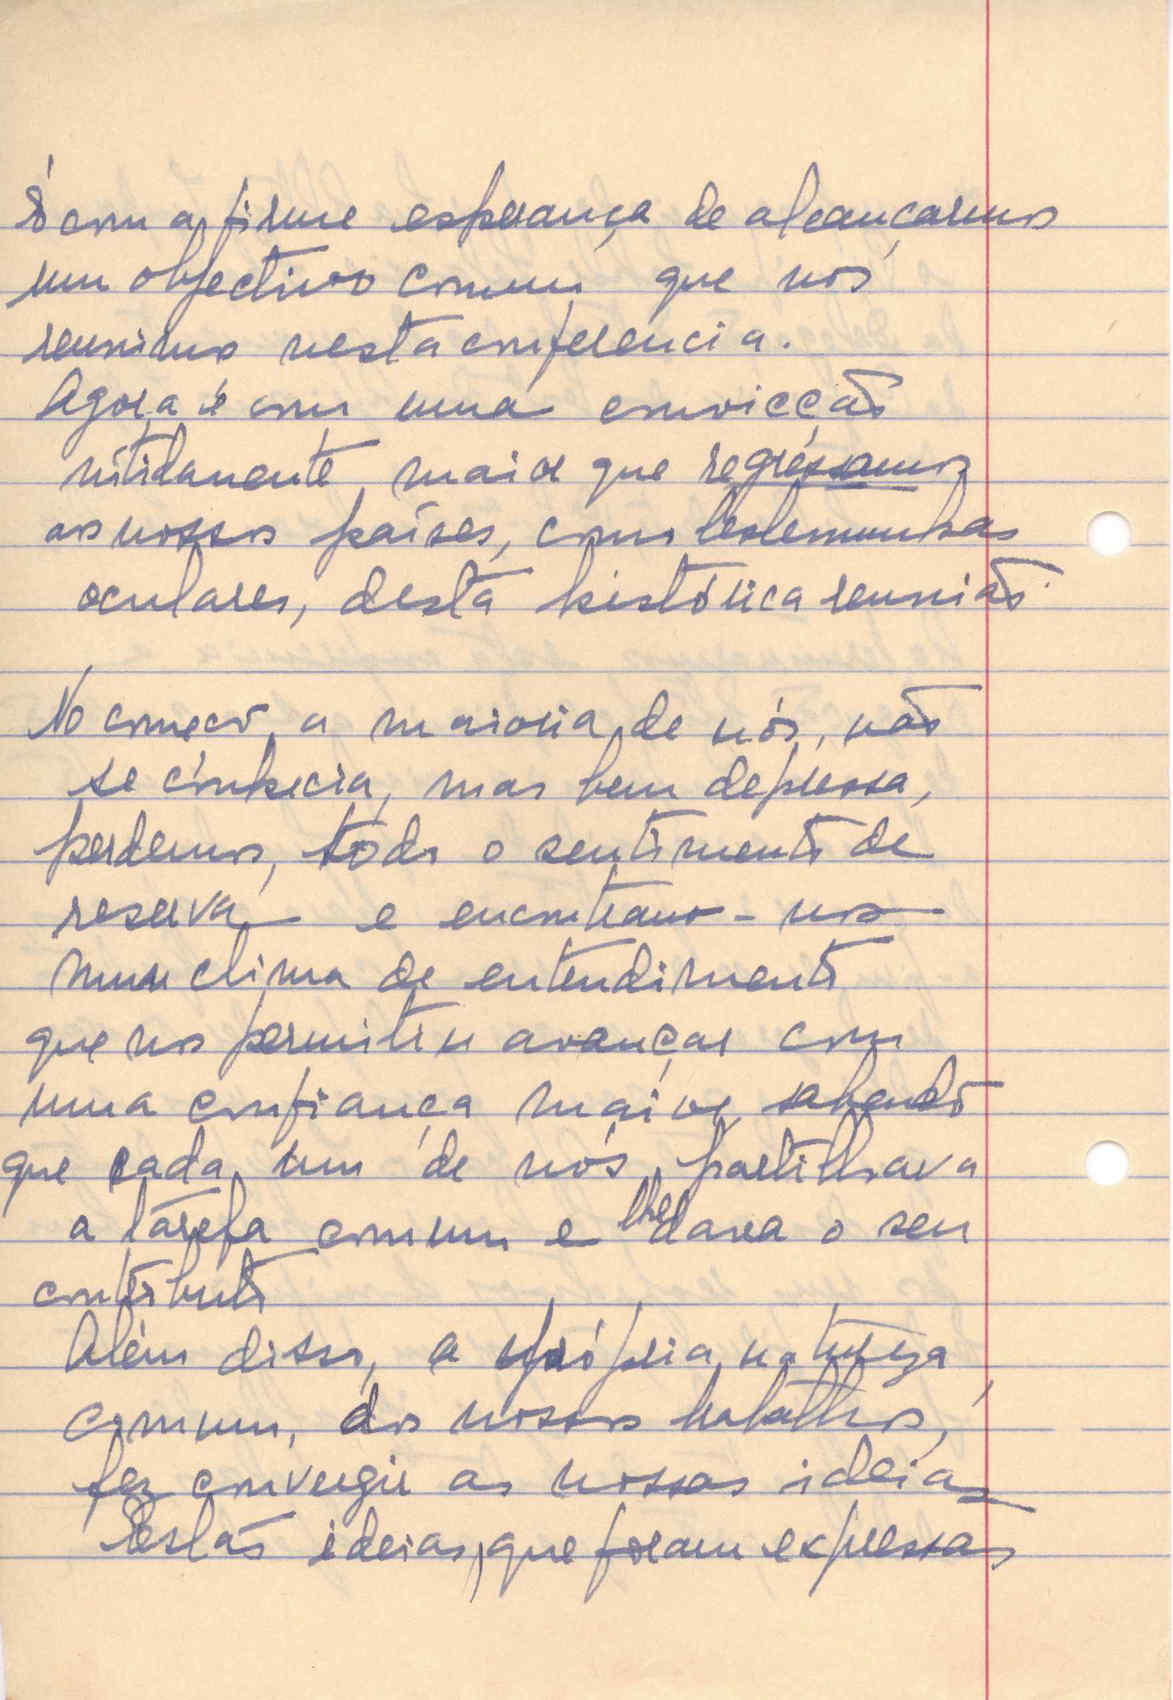 É com a firme esperança de alcançarmos
um objectivo comum que nos
reunimos nesta conferencia.
Agora é com uma convicção
nitidamente maior que regressamos
aos nossos países, como testemunhas
oculares, desta histórica reunião
No começo a maioria de nós, não
se conhecia, mas bem depressa,
perdemos, todo o sentimento de
reserva e encontramo-nos
num clima de entendimento
que nos permitiu avançar com
uma confiança maior sabendo
que cada um de nós partilhava
a tarefa comum e lhe dava o seu
contributo
Além disso, a própria natureza
comum, dos nossos trabalhos,
fez convergir as nossas ideias
Estas ideias, que foram expressas